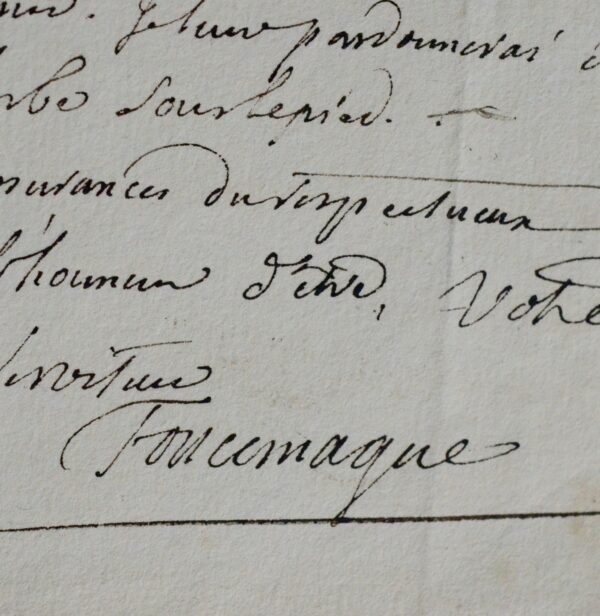 Je leur pardonnerai
sous le pied.
assurances du respectueux
l'honneur d'être, Votre
serviteur
Foncemagne